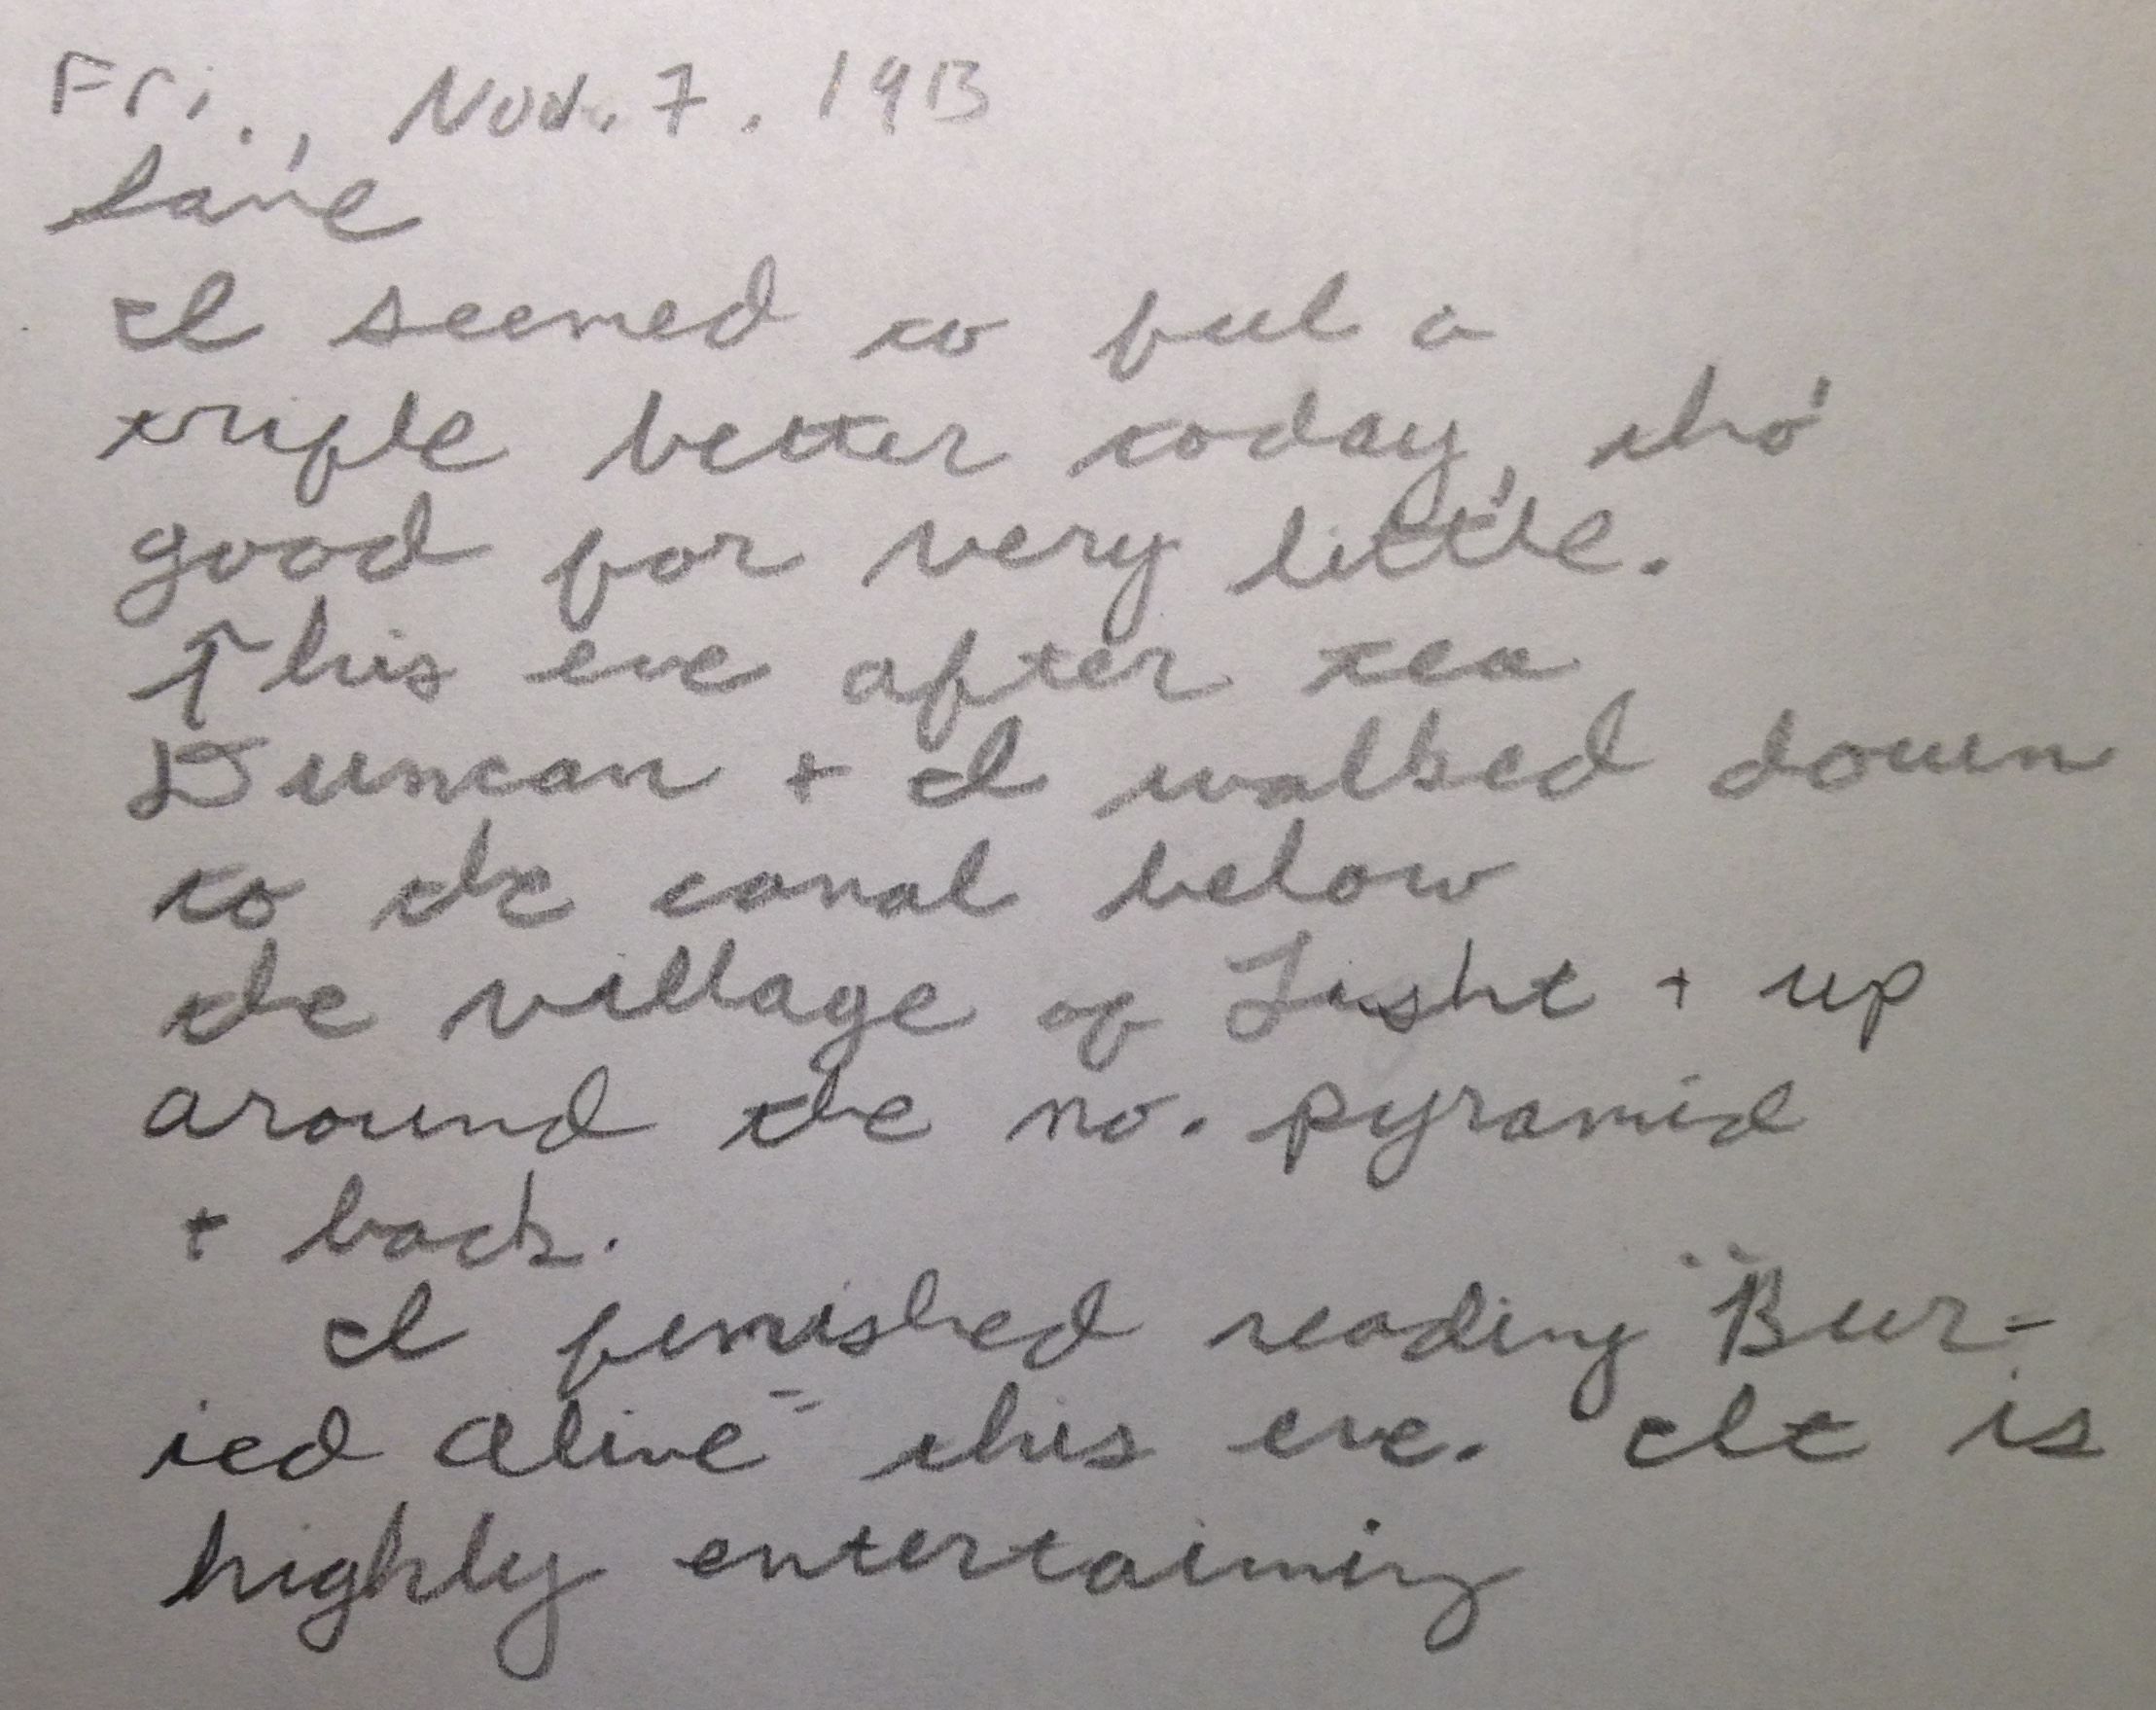 Fri., Nov. 7. 1913
Same
I seemed to feel a
trifle better today, tho'
good for very little.
This eve after tea
Duncan + I walked down
to the canal below
the village of Lisht + up
around the no. pyramid
+ back.
I finished reading "Bur-
ied Alive" this eve. It is
highly entertaining